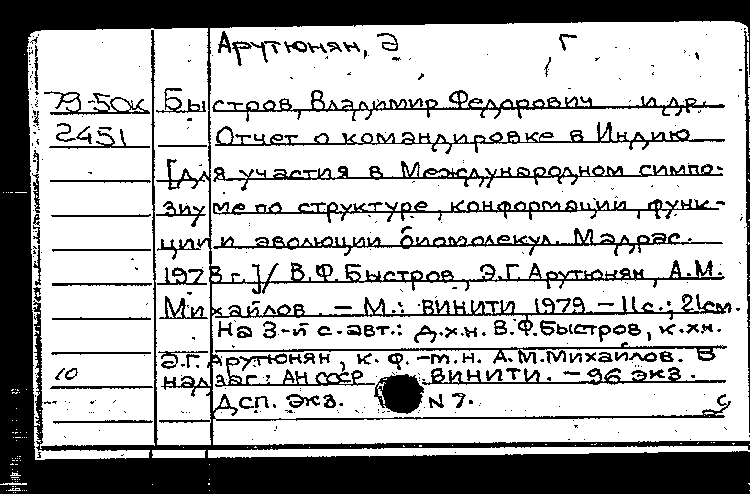 Арутюнян, Э Г
79-50к Быстров, Владимир Федорович и др.
2451 Отчет о командировке в Индию
[для участия в Международном симпо-
зиуме по структуре, конформации, функ-
ции и эволюции биомолекул. Мадрас.
1978 г.] / В.Ф. Быстров, Э.Г. Арутюнян, А.М.
Михайлов. – М.: ВИНИТИ, 1979. – 11 с.; 21 см.
На 3-й с. авт.: д.х.н. В.Ф. Быстров, к.хн.
Э.Г. Арутюнян, к. ф.-м.н. А.М. Михайлов. В
10 надзаг: АН СССР ВИНИТИ. – 96 экз.
ДСП. Экз. N 7.